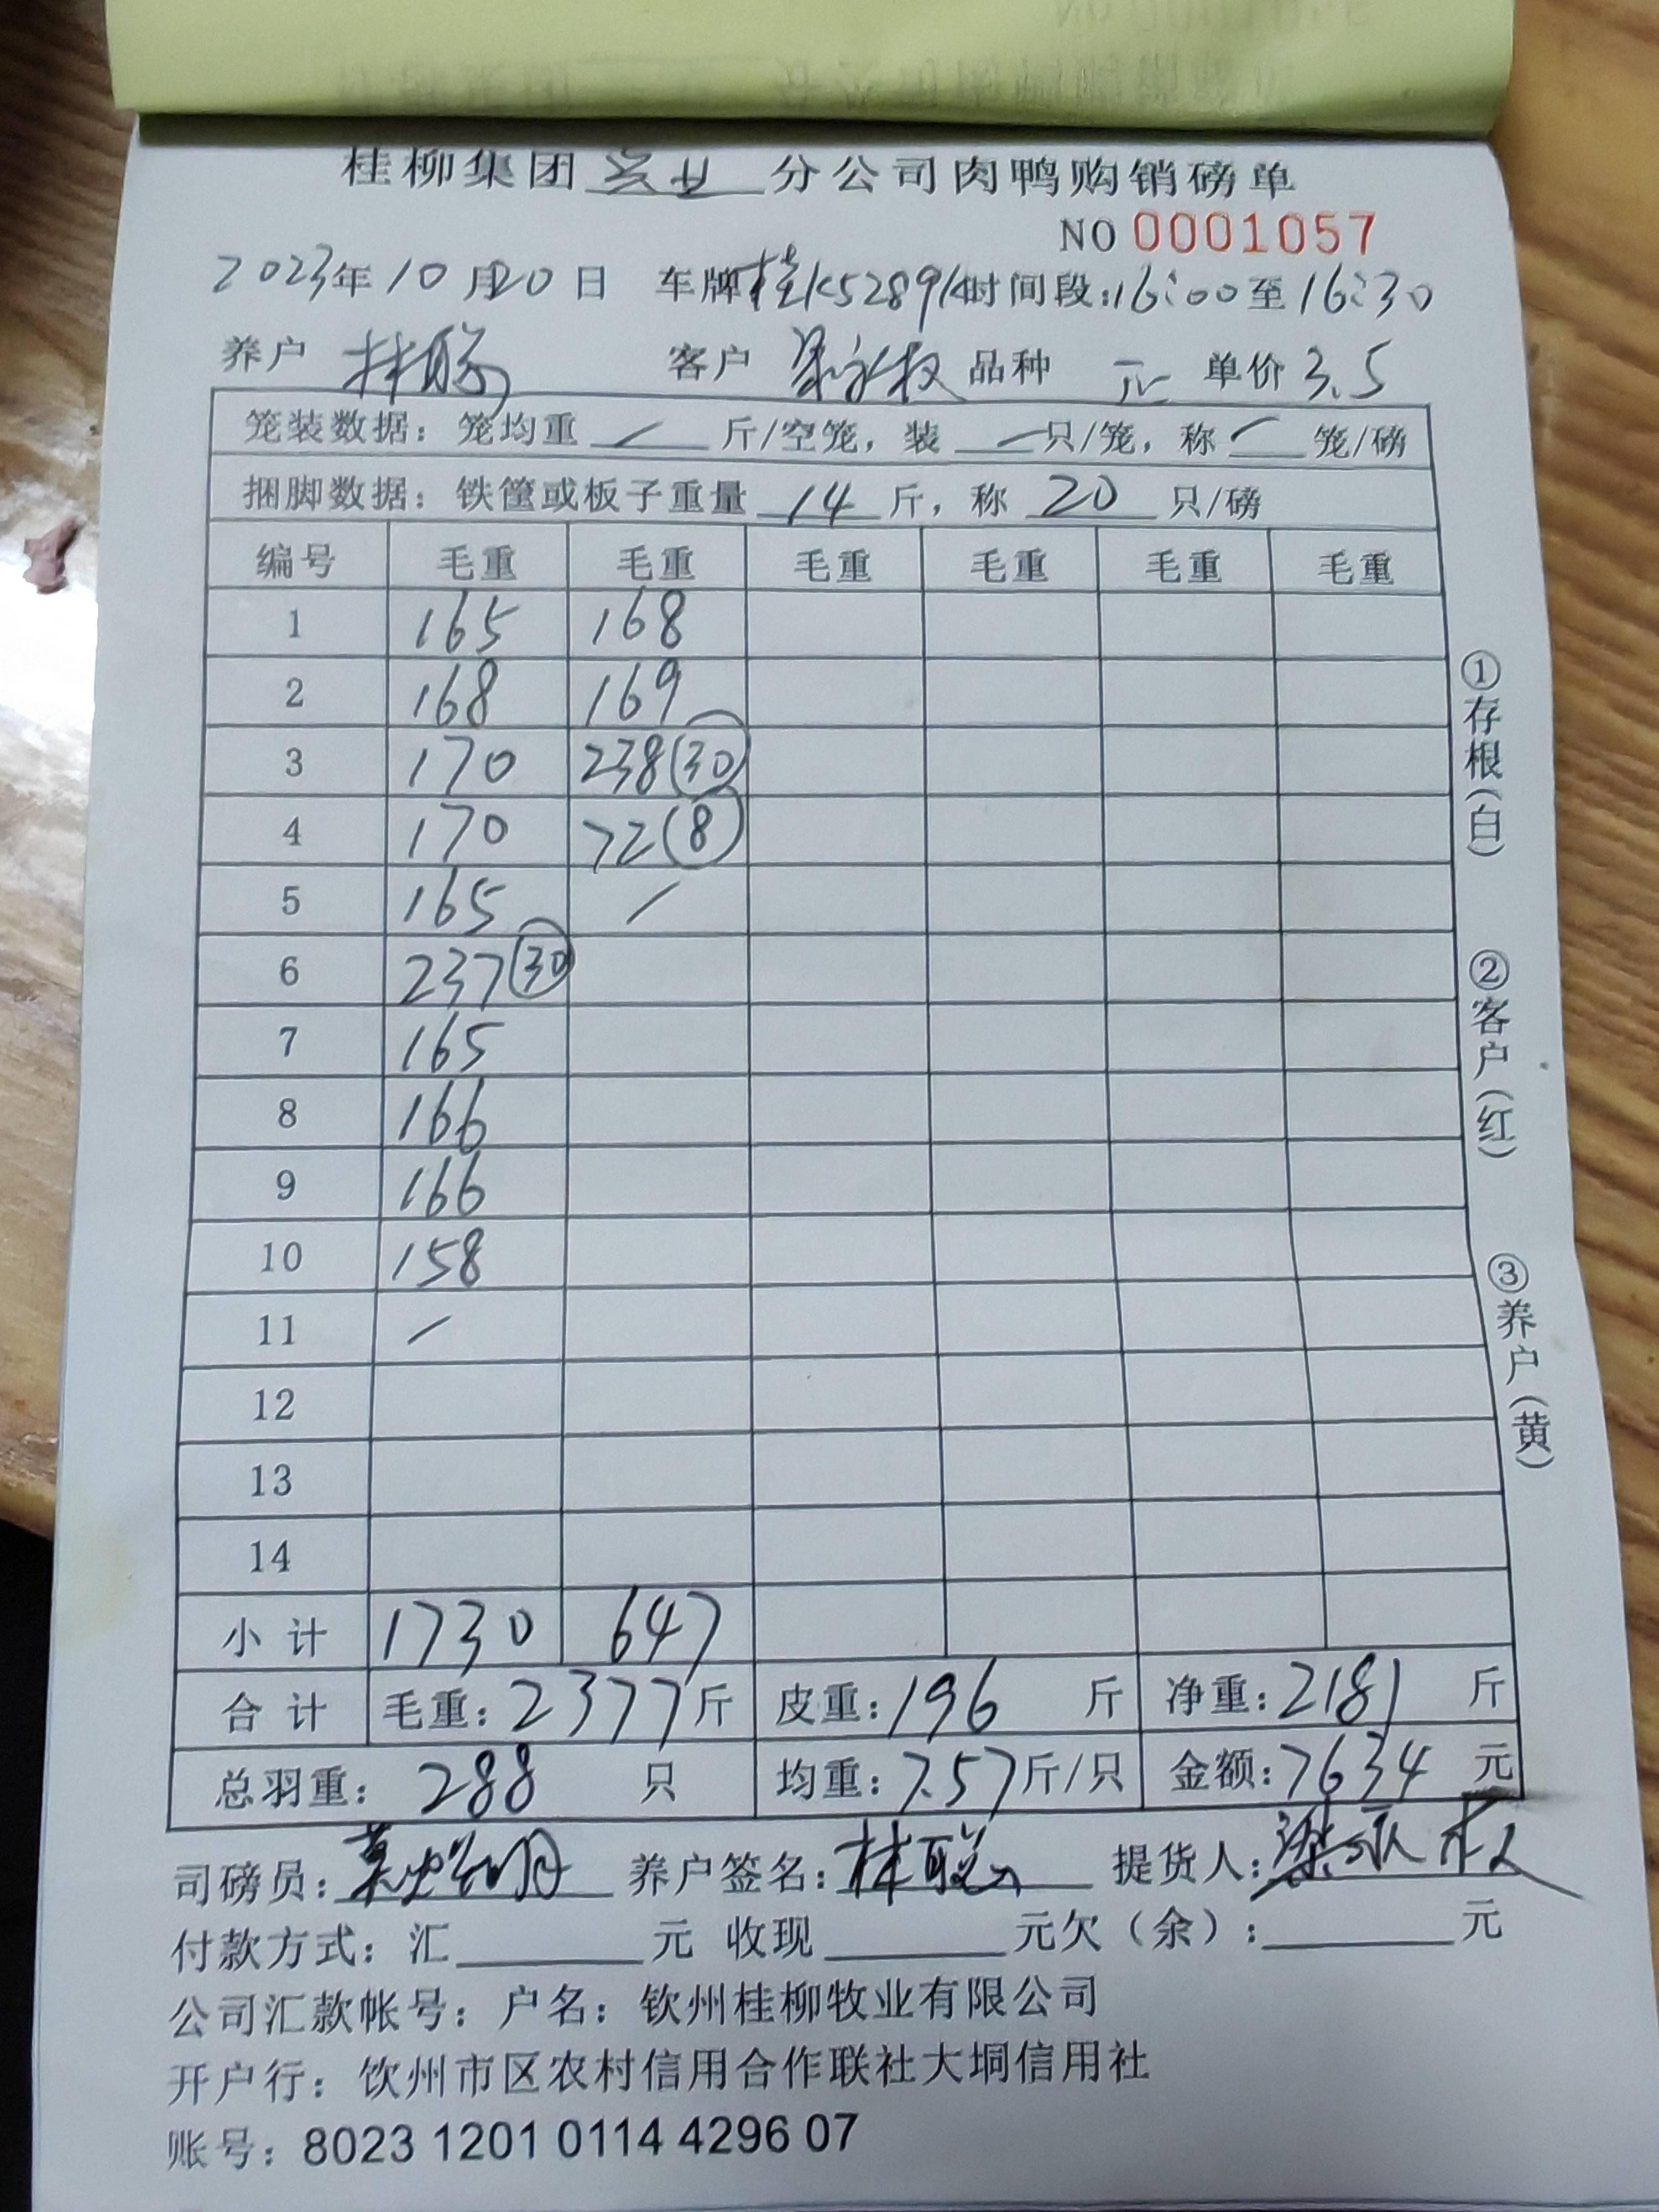 桂柳集团 分公司肉鸭购销磅单
NO 0001057
2023年10月20日 车牌桂K5289 时间段:16:00至16:30
养户 林聪 客户 梁永权 品种 单价 3.5
笼装数据: 笼均重 / 斤/空笼, 装 / 只/笼, 称 / 笼/磅
捆脚数据: 铁筐或板子重量 14 斤, 称 20 只/磅
编号 毛重 毛重 毛重 毛重 毛重 毛重
1 165 168
2 168 169
3 170 238(30)
4 170 72(8)
5 165 /
6 237(30)
7 165
8 166
9 166
10 158
11 /
12
13
14
小计 1730 647
合计 毛重: 2377斤 皮重: 196 斤 净重: 2181 斤
总羽重: 288 只 均重: 7.57斤/只 金额: 7634 元
司磅员: 养户签名: 林聪 提货人: 梁永权
付款方式: 汇 元 收现 元欠(余): 元
公司汇款帐号: 户名: 钦州桂柳牧业有限公司
开户行: 钦州市区农村信用合作联社大垌信用社
账号: 8023 1201 0114 4296 07
①存根(白)
②客户(红)
③养户(黄)